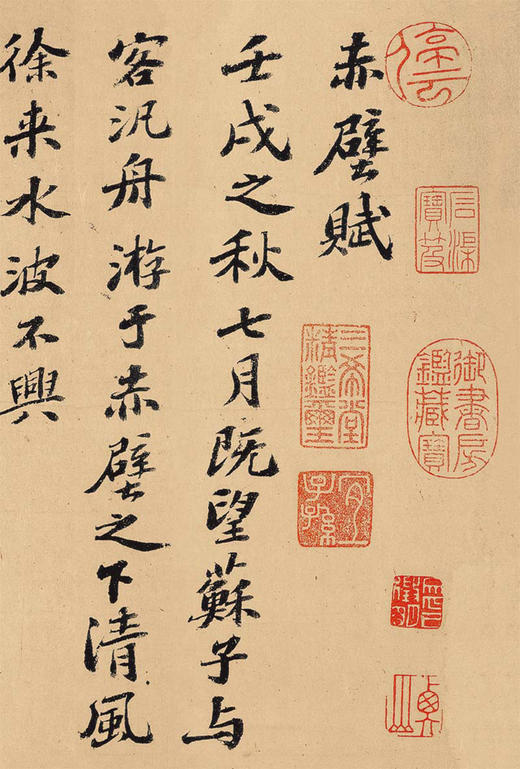 石渠寶笈
御書房鑑藏寶
三希堂精鑑璽
宜子孫
赤壁賦
壬戌之秋七月既望蘇子与
客汎舟游于赤壁之下清風
徐来水波不興